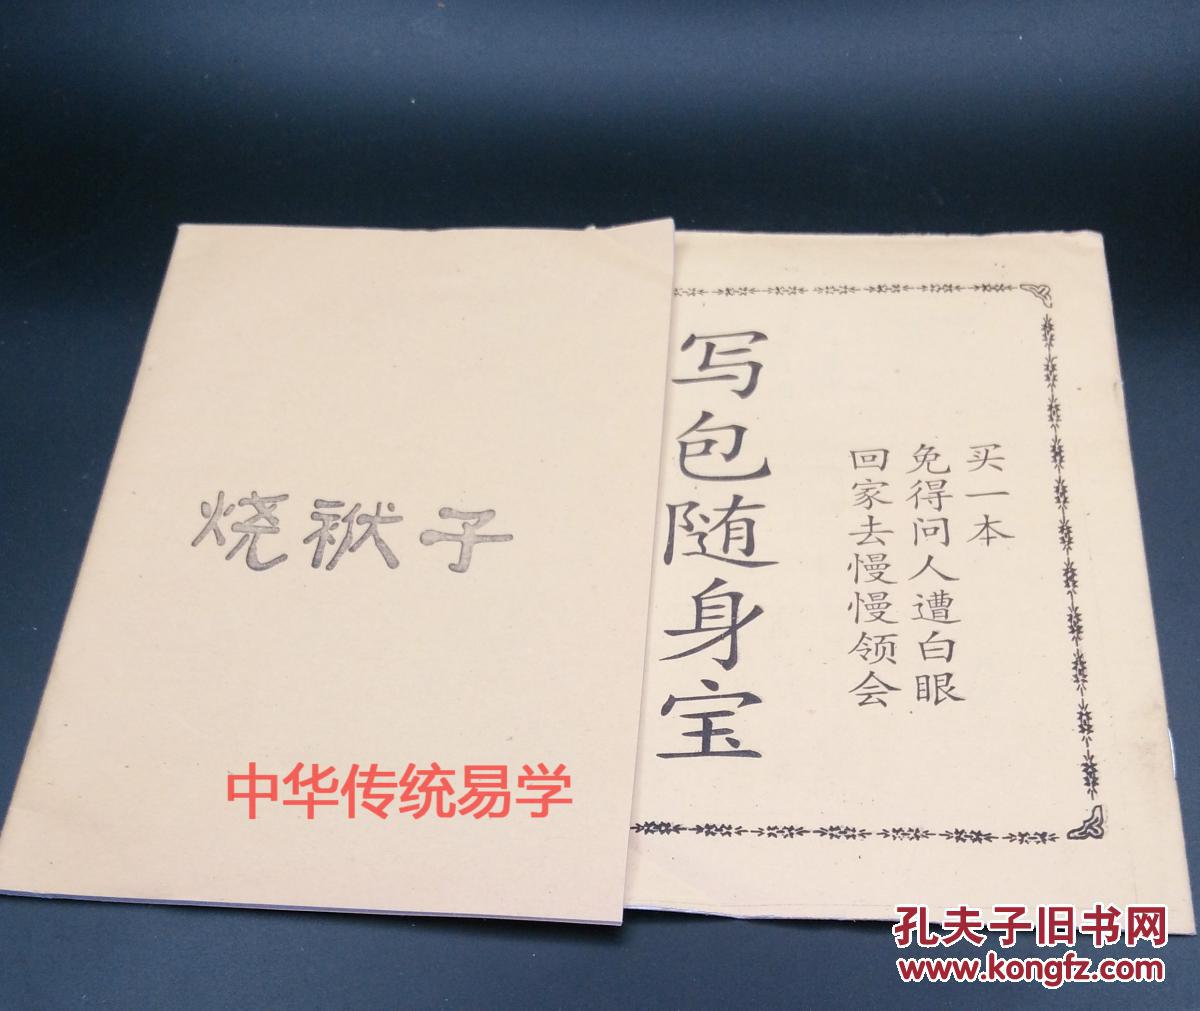 烧袱子
中华传统易学
买一本
免得问人遭白眼
回家去慢慢领会
写包随身宝
孔夫子旧书网
www.kongfz.com